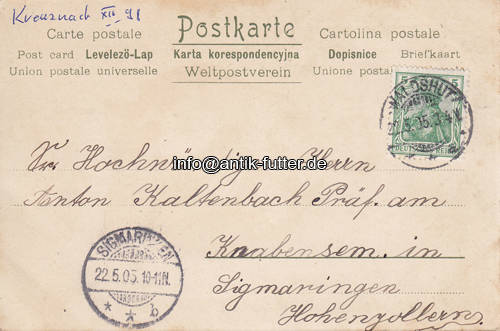 Kreuznach XII 91
Postkarte
Carte postale
Cartolina postale
Post card Levelező-Lap Karta korespondencyjna Dopisnice Briefkaart
Union postale universelle Weltpostverein Unione postale
WALDSHUT
DEUTSCHES REICH
Sr Hochwürdig Herrn
info@antik-futter.de
Anton Kaltenbach Präf. am
Knabensem. in
Sigmaringen
Hohenzollern.
SIGMARINGEN
22.5.05. 10-11N.
* * b